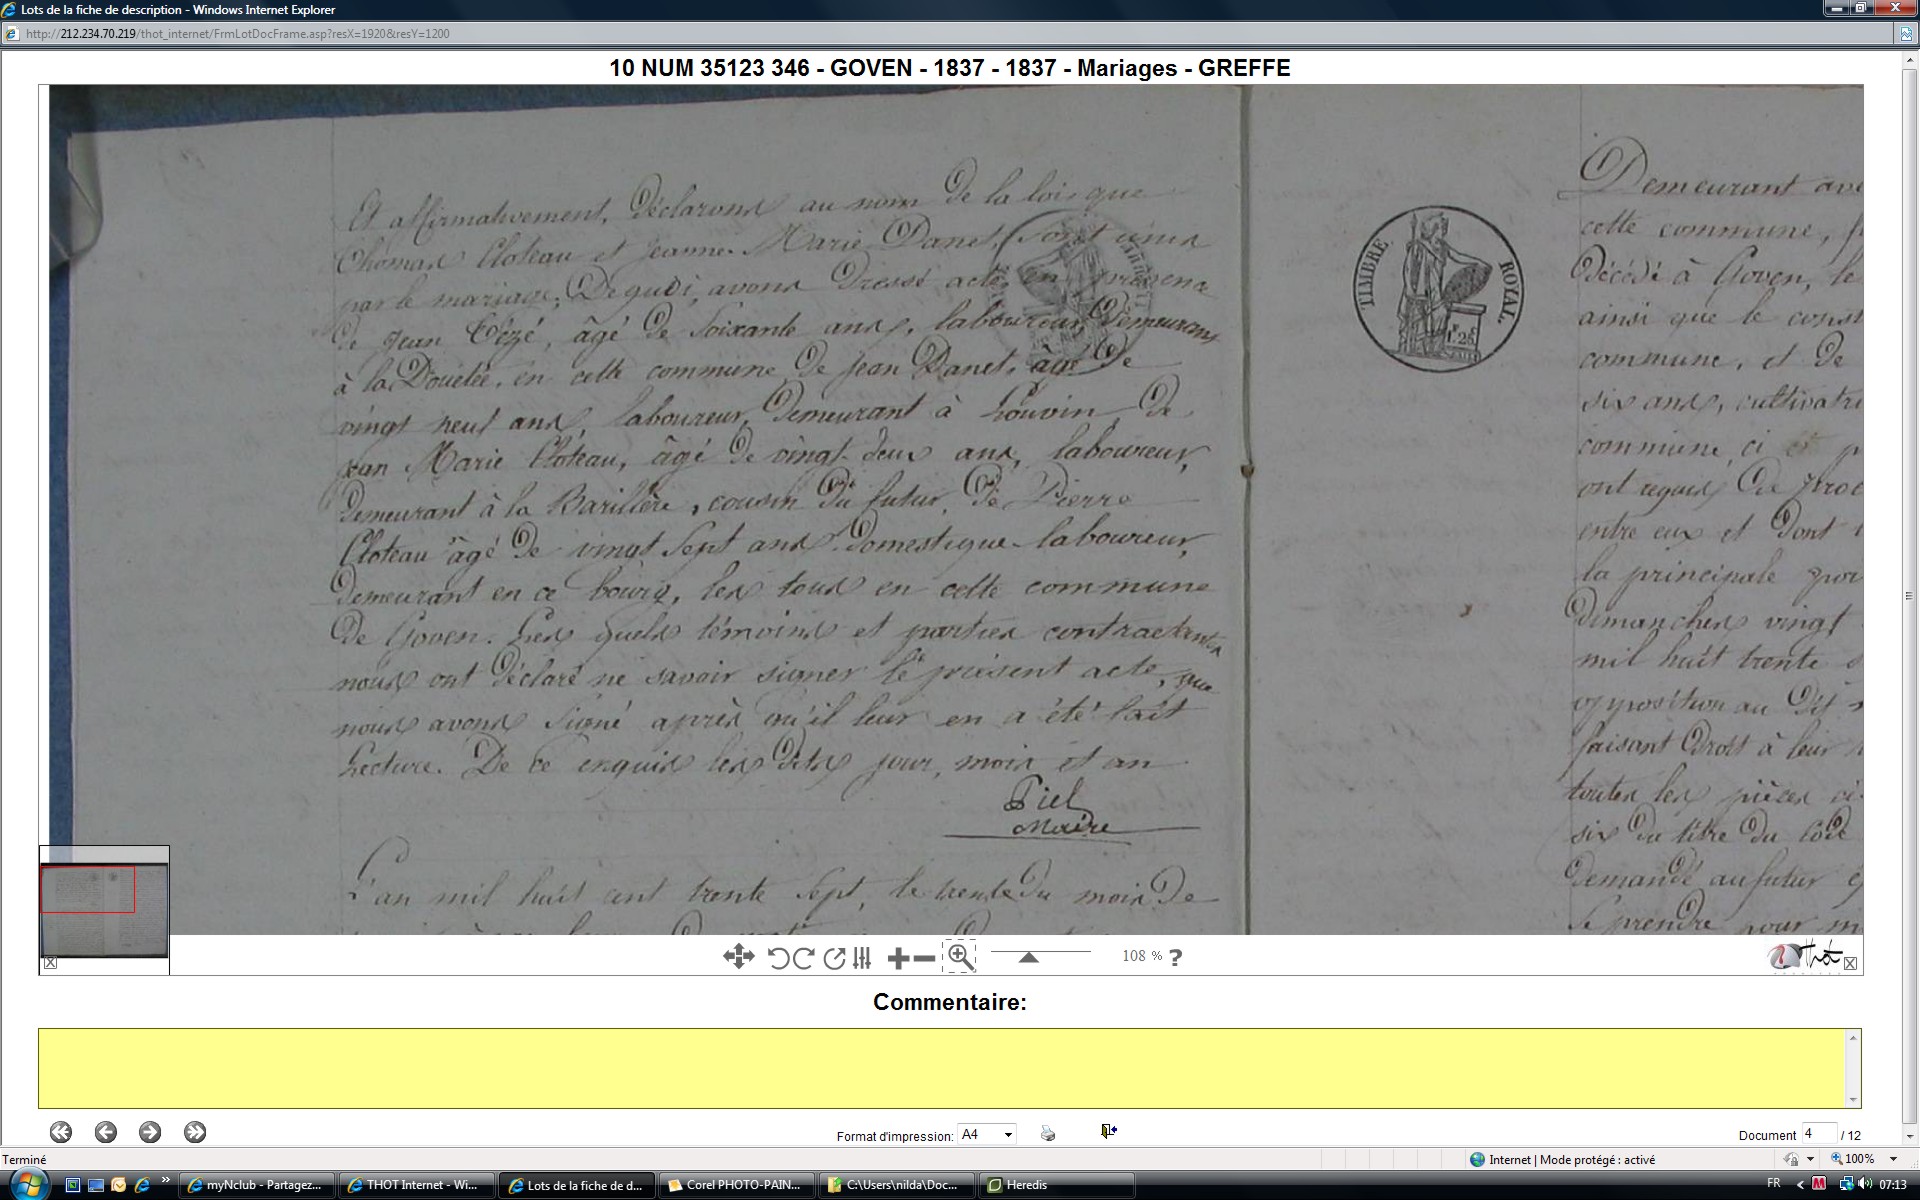 Lots de la fiche de description - Windows Internet Explorer
http://212.234.70.219/thot_internet/FrmLotDocFrame.asp?resX=1920&resY=1200
10 NUM 35123 346 - GOVEN - 1837 - 1837 - Mariages - GREFFE
Et affirmativement, déclarons au nom de la loi que
Thomas Cloteau et Jeanne Marie Danet, sont unis
par le mariage; De quoi, avons dressé acte en présence
de Jean Tézé, âgé de soixante ans, laboureur, demeurant
à la en cette commune de Jean Danet, âgé de
vingt neuf ans, laboureur, demeurant à Louvin, de
Jean Marie Cloteau, âgé de vingt-deux ans, laboureur,
demeurant à la Barillère, cousin du futur, de Pierre
Cloteau âgé de vingt sept ans domestique laboureur,
demeurant en ce bourg, les tous en cette commune
de Goven. Les quels témoins et parties contractantes
nous ont déclaré ne savoir signer le présent acte, que
nous avons signé après qu'il leur en a été fait
Lecture. De ce enquis les dits jour, mois et an
Piel
Maire
L'an mil huit cent trente sept, le trente du mois de
TIMBRE ROYAL.
1F.25C
Demeurant ave
cette commune, f
décédé à Goven, le
ainsi que le const
commune, et de
six ans, cultivatri
commune, ci et p
ont requis De proc
entre eux et dont l
la principale por
dimanches vingt
mil huit trente s
opposition au dit
faisant droit à leur
toutes les pièces ci
six du titre du Code
demandé au futur é
se prendre pour m
108 % ?
Thot
Commentaire:
Format d'impression: A4
Document 4 / 12
Terminé
Internet | Mode protégé : activé
100%
myNclub - Partagez...
THOT Internet - Wi...
Lots de la fiche de d...
Corel PHOTO-PAIN...
C:\Users\nilda\Doc...
Heredis
FR
07:13